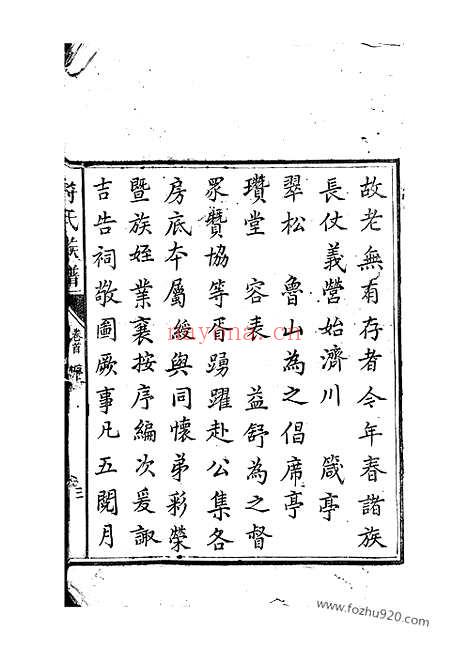 故老無有存者今年春諸族
長仗義營始濟川 箴亭
翠松 魯山為之倡席亭
瓚堂 容表 益舒為之督
眾贊協等胥踴躍赴公集各
房底本屬俊與同懷弟彩榮
暨族姪業襄按序編次爰諏
吉告祠敬圖厥事凡五閱月
氏族譜
卷首
三
nayona.cn
www.fozhu920.com